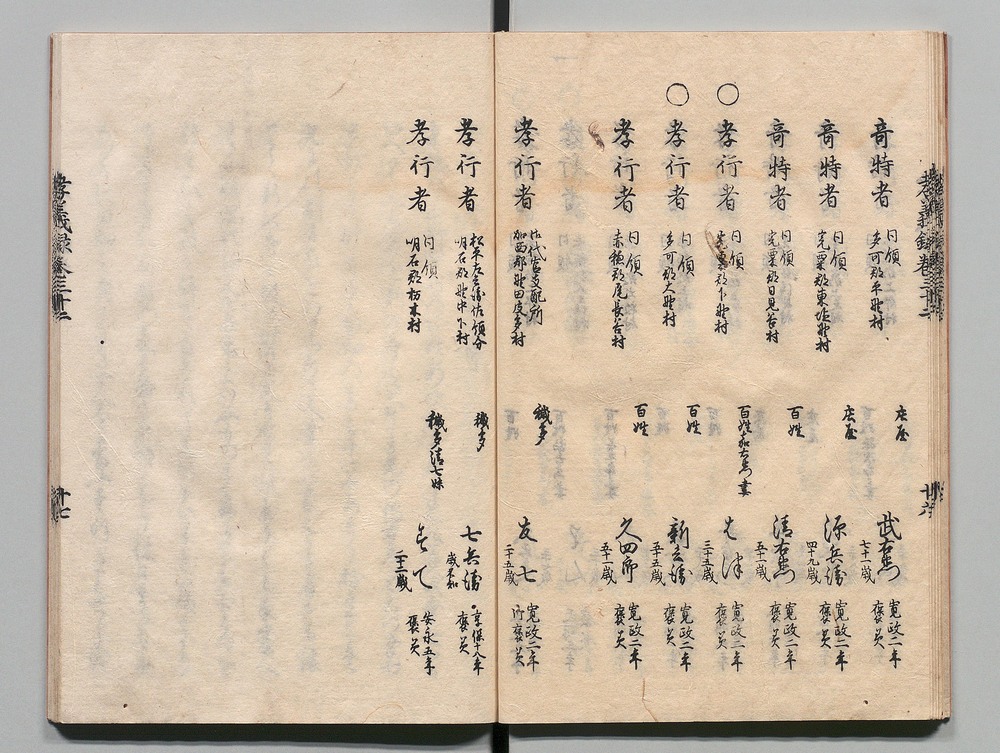 奇特者 同領 多可郡平野村 庄屋 武右衛門 七十一歳 寛政二年 褒美
奇特者 同領 宍粟郡東塩野村 庄屋 源兵衛 四十九歳 寛政二年 褒美
奇特者 同領 宍粟郡日見谷村 百姓 清右衛門 五十一歳 寛政二年 褒美
○孝行者 同領 宍粟郡下野村 百姓和右衛門妻 津 三十五歳 寛政二年 褒美
○孝行者 同領 多可郡大野村 百姓 新兵衛 五十五歳 寛政二年 褒美
孝行者 同領 赤穂郡尾長谷村 百姓 久四郎 五十一歳 寛政二年 褒美
孝行者 御代官支配所 加西郡野田皮多村 穢多 友七 二十五歳 寛政二年 御褒美
孝行者 松平左兵衛佐領分 明石郡野中下村 穢多 七兵衛 歳不知 享保十八年 褒美
孝行者 同領 明石郡枋木村 穢多清七妹 て 二十一歳 安永五年 褒美
孝義録巻三十二
廿六
孝義録巻三十二
廿七